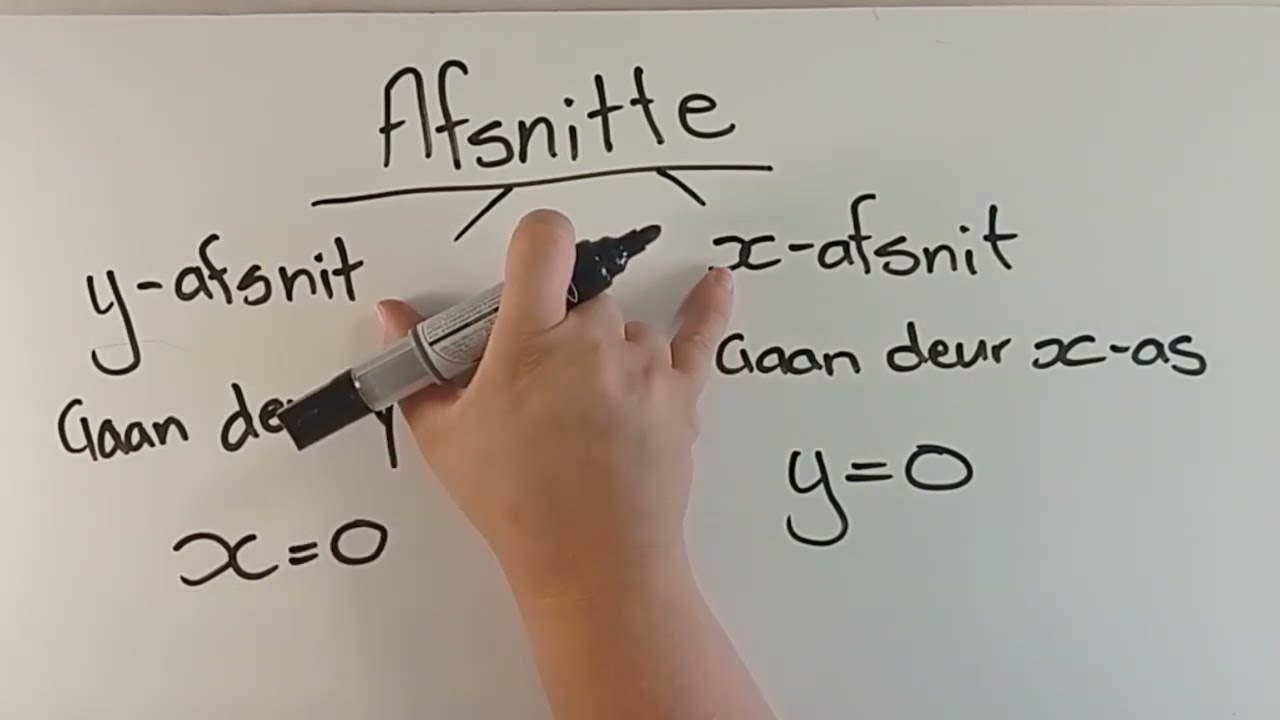 Afsnitte
y-afsnit
Gaan
x=0
x-afsnit
Gaan deur x-as
y=0